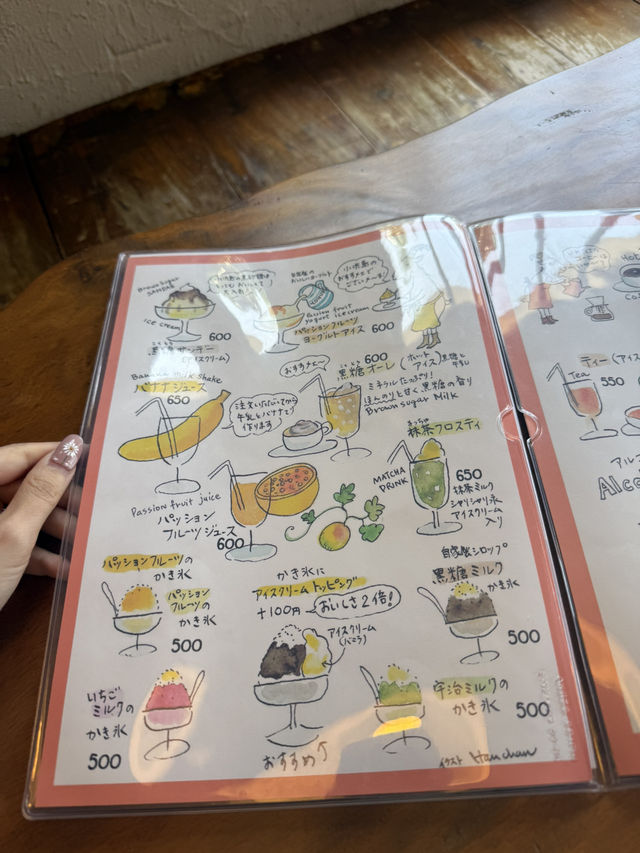 Brown Sugar
SANDAE
ICE cream
600
黒糖サンデー
(アイスクリーム)
自家製の
おいしいヨーグルト
Passion fruit
yogurt ice cream
パッションフルーツ
ヨーグルトアイス
600
小浜島の
おすすめで
ございまーす!
Banana milk shake
バナナジュース
650
注文いただいてから
牛乳とバナナで
作ります
おすすめでーす
600
黒糖オーレ
(ホット
アイス)
黒糖と
牛乳
ミネラルたっぷり!
ほんのりと甘く黒糖の香り
Brown sugar Milk
Passion fruit juice
パッション
フルーツジュース
600
まっちゃ
抹茶フロスティ
MATCHA
DRINK
650
抹茶ミルク
シャリシャリ氷
アイスクリーム
入り
パッションフルーツの
かき氷
パッション
フルーツの
かき氷
500
かき氷に
アイスクリームトッピング
+100円
おいしさ2倍!
アイスクリーム
(バニラ)
おすすめ
自家製シロップ
黒糖ミルク
かき氷
500
いちご
ミルクの
かき氷
500
宇治ミルクの
かき氷
500
イラスト Hanchan
Hot
ティー(アイス
Tea
550
アルコ
Alco